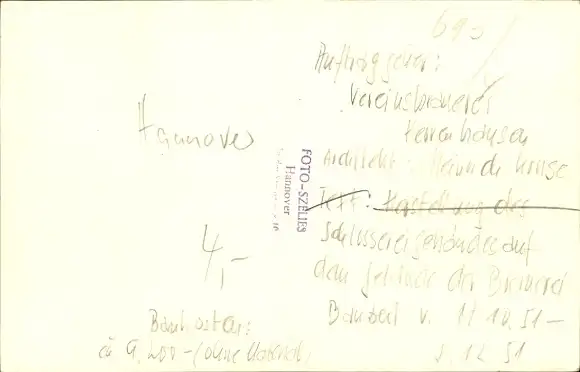 Auftraggeber:
Vereinsbrauerei
Herrenhausen
Architekt: Heinrich
Text: Herstellung des
Schlossereigebäudes auf
dem Gelände der Brauerei
Bauzeit v. 11.10.51 –
12 51
Hannover
FOTO-SZELIES
Hannover
4,-
Baukosten:
ca 9.200 - (ohne Material)